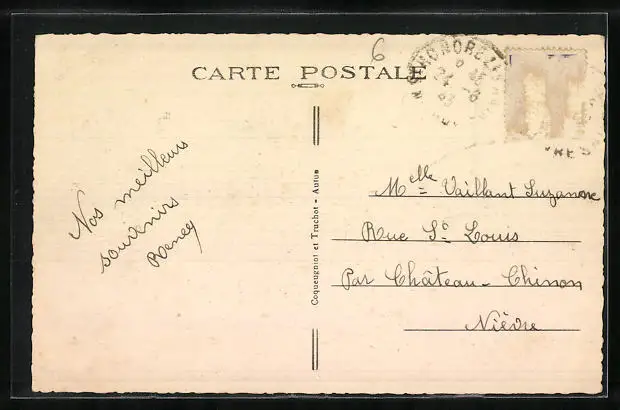 6
CARTE POSTALE
Nos meilleurs
souvenirs
Coqueugniot et Truchot - Autun
Melle Vaillant Suzanne
Rue St Louis
Par Château-Chinon
Nièvre